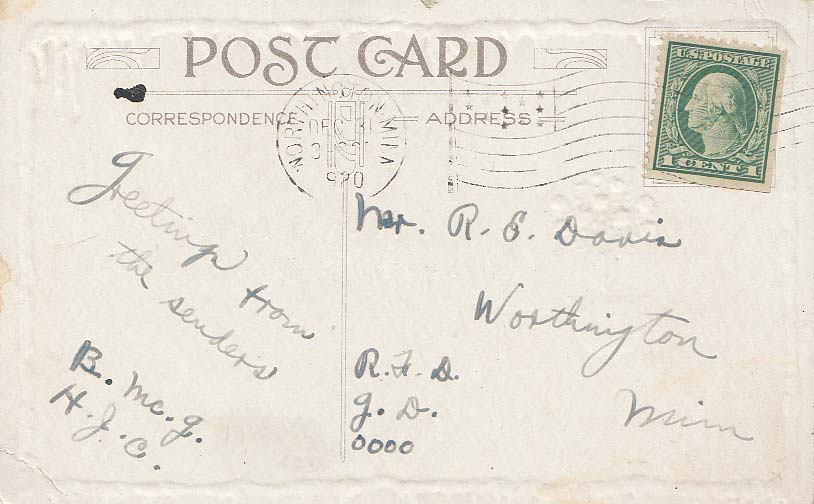 POST CARD
CORRESPONDENCE
ADDRESS
U.S. POSTAGE
1 CENT 1
Greetings from
the senders
B. Mc. G.
H. J. C.
Mr. R. E. Davis
Worthington
Minn
R. F. D.
G. D.
0000